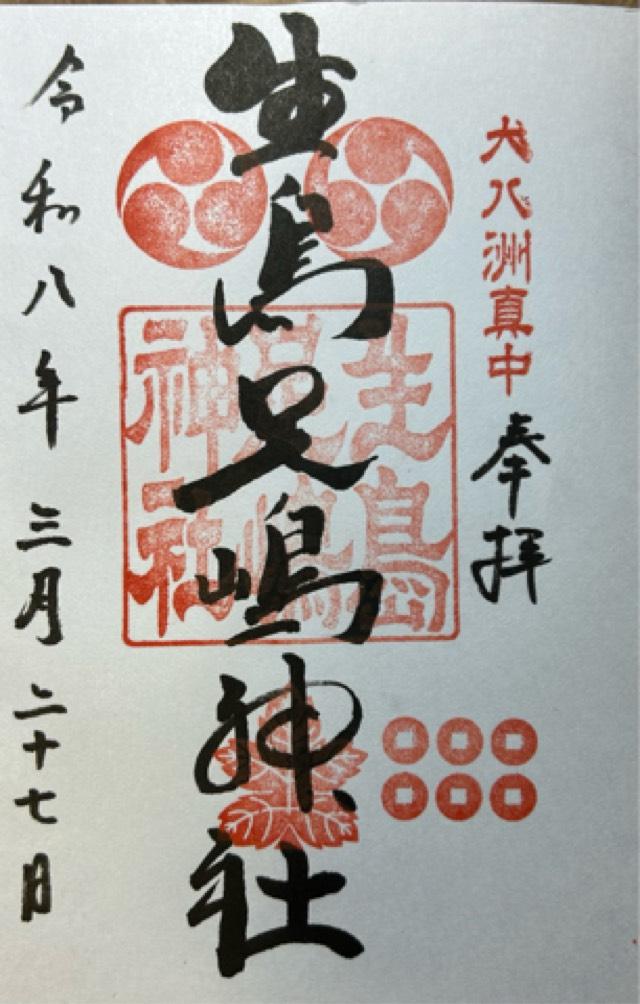 大八洲真中
奉拝
生島足嶋神社
生島
足嶋
神社
令和八年三月二十七日